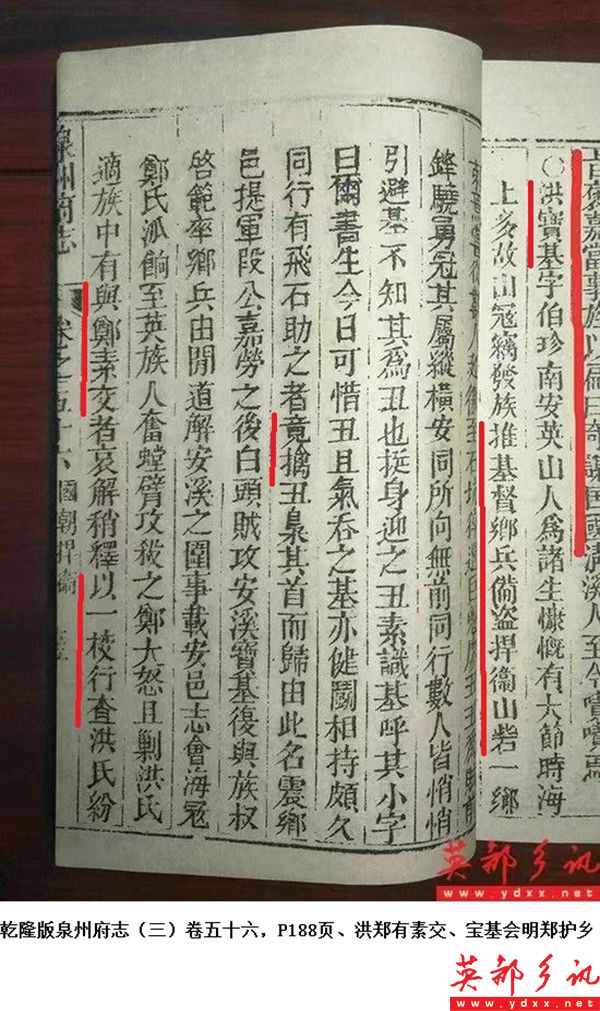 旨褒嘉當事旌以扁曰奇謀囯國溝溪人至今嘖嘖焉
○洪寶基字伯珍南安英山人爲諸生慷慨有大節時海
上多故山冦竊發族推基督鄉兵備盗捍衞山砦一鄉
鋒驍勇冠其屬縱橫安同所向無前同行數人皆悄悄
引避基不知其爲丑也挺身迎之丑素識基呼其小字
曰爾書生今日可惜丑且氣吞之基亦健鬭相持頗久
同行有飛石助之者竟擒丑梟其首而歸由此名震鄉
邑提軍段公嘉勞之後白頭賊攻安溪寶基復與族叔
啓範率鄉兵由閒道解安溪之圍事載安邑志會海冦
鄭氏派餉至英族人奮螳臂攻殺之鄭大怒且剿洪氏
適族中有與鄭素交者哀解稍釋以一校行查洪氏紛
泉州府志
卷之五十六 國朝捍禦
英都乡讯
www.ydxx.net
乾隆版泉州府志（三）卷五十六，P188页、洪郑有素交、宝基会明郑护乡
英都乡讯
www.ydxx.net